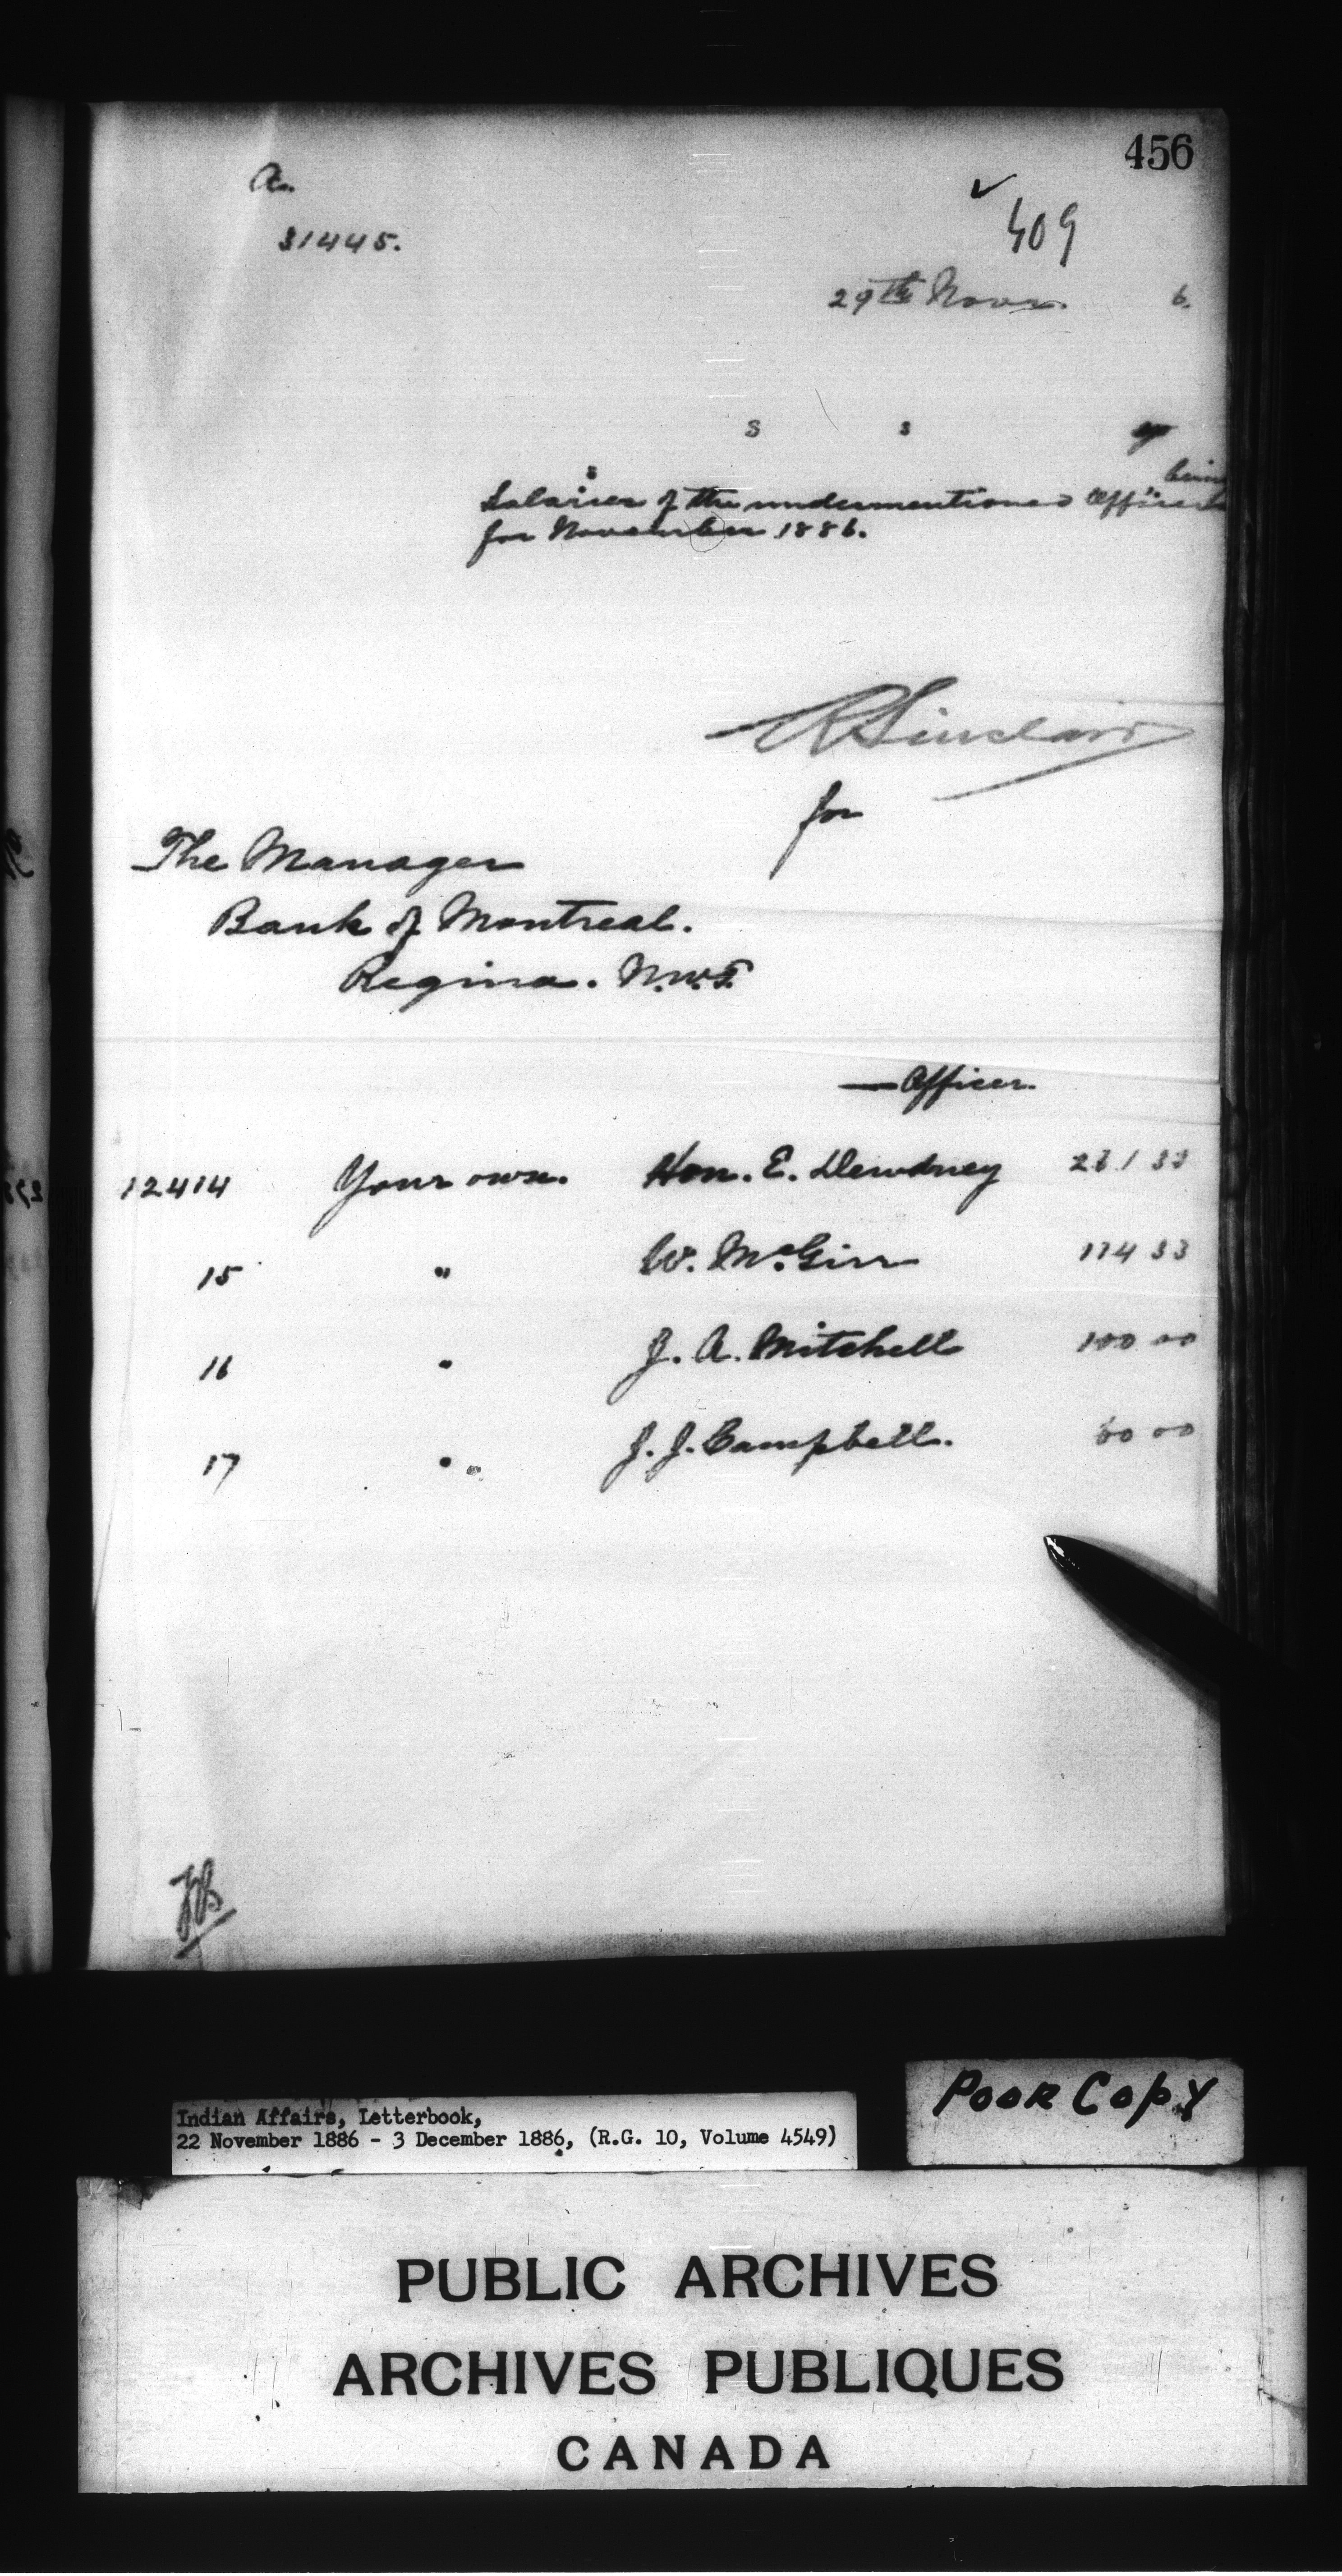 456
A.
31445.
409
29th Novr. 6.
s s
s being
Salaries of the undermentioned Officials
for November 1886.
R Sinclair
for
The Manager
Bank of Montreal.
Regina. N.W.T.
Officer.
12414 Your own. Hon. E. Dewdney
15 " W. McGirr 174 33
16 " J. A. Mitchell 100 00
17 " J. J. Campbell. 00
Indian Affairs, Letterbook,
22 November 1886 - 3 December 1886, (R.G. 10, Volume 4549)
POOR COPY
PUBLIC ARCHIVES
ARCHIVES PUBLIQUES
CANADA